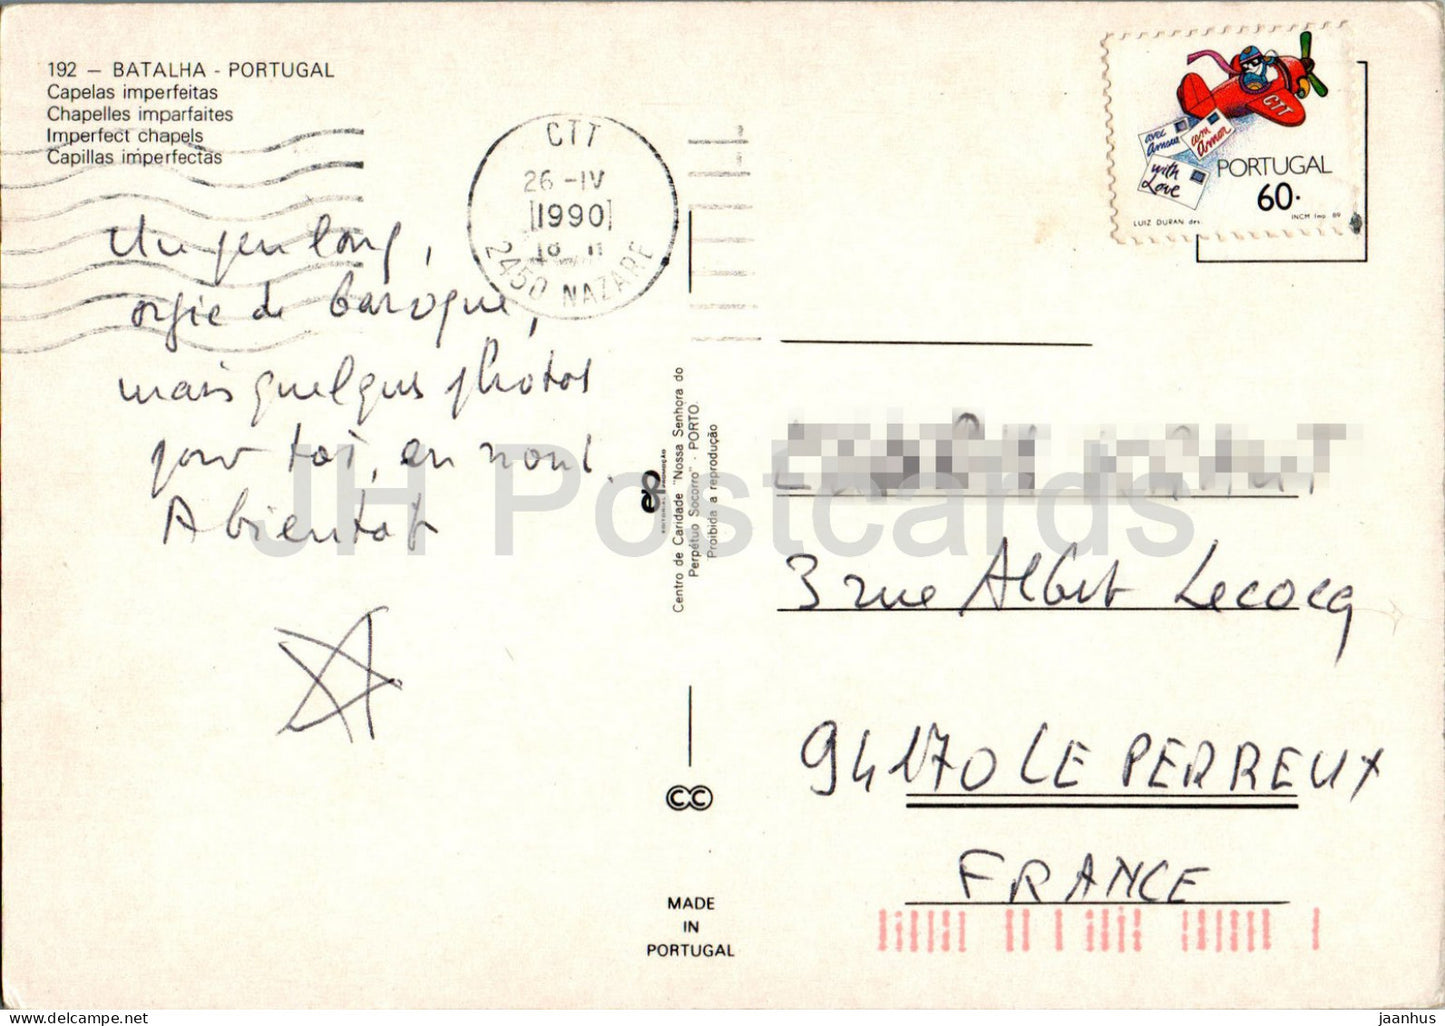 192 – BATALHA - PORTUGAL
Capelas imperfeitas
Chapelles imparfaites
Imperfect chapels
Capillas imperfectas
CTT
26 -IV
1990
2450 NAZARE
CTT
avec Amour
com Amor
with Love
PORTUGAL
60.
LUIZ DURAN des.
INCM Imp 89
Un peu long,
orgie de baroque,
mais quelques photos
pour toi, en noir.
A bientôt
Centro de Caridade "Nossa Senhora do
Perpétuo Socorro" - PORTO
Proibida a reprodução
JH Postcards
3 rue Albert Lecocq
94170 LE PERREUX
FRANCE
CC
MADE
IN
PORTUGAL
jaanhus